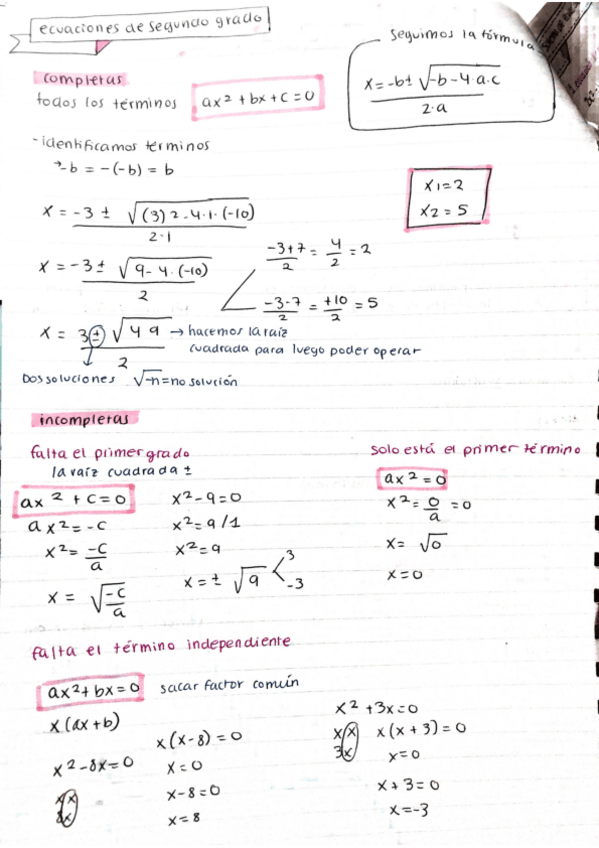 ecuaciones de segundo grado
seguimos la fórmula
x = -b ± √-b - 4·a·c
2·a
completas
todos los términos ax² + bx + c = 0
- identificamos términos
→ -b = -(-b) = b
x1 = 2
x2 = 5
x = -3 ± √(3)2 - 4·1·(-10)
2·1
x = -3 ± √9 - 4·(-10)
2
-3+7 = 4 = 2
2 2
-3-7 = +10 = 5
2 2
x = 3 ± √49 → hacemos la raíz
2 cuadrada para luego poder operar
Dos soluciones √-n = no solución
incompletas
falta el primer grado
la raíz cuadrada ±
ax² + c = 0
ax² = -c
x² = -c
a
x = √-c
a
x² - 9 = 0
x² = 9/1
x² = 9
x = ± √9 < 3
-3
solo está el primer término
ax² = 0
x² = 0 = 0
a
x = √0
x = 0
falta el término independiente
ax² + bx = 0 sacar factor común
x(ax + b)
x² - 8x = 0
x x
8x
x(x - 8) = 0
x = 0
x - 8 = 0
x = 8
x² + 3x = 0
x x
3x
x(x + 3) = 0
x = 0
x + 3 = 0
x = -3